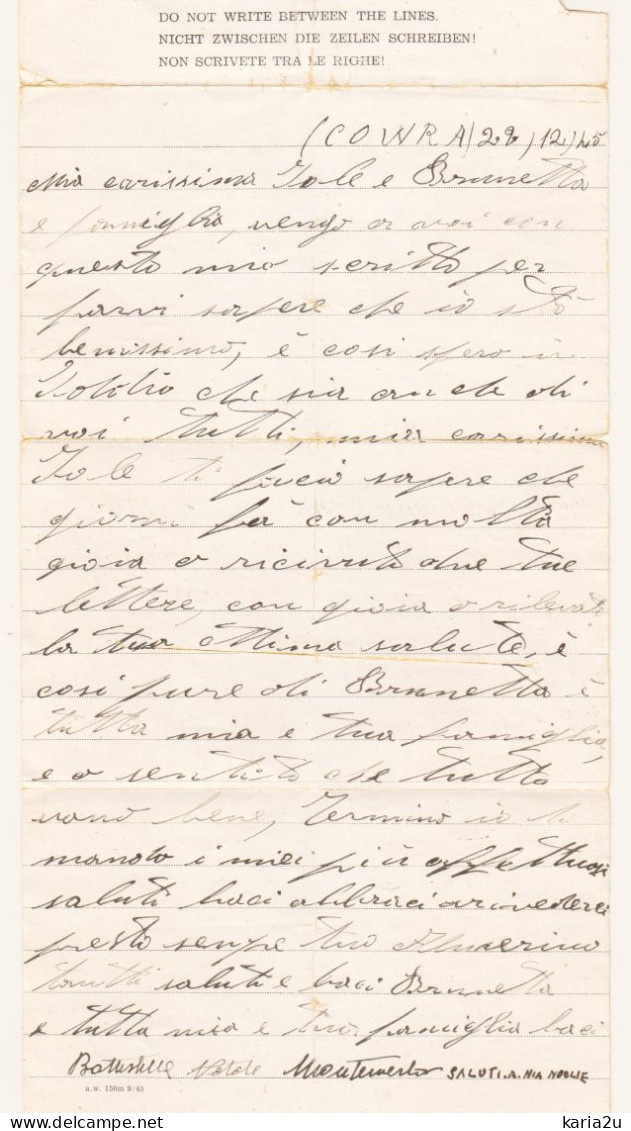 DO NOT WRITE BETWEEN THE LINES.
NICHT ZWISCHEN DIE ZEILEN SCHREIBEN!
NON SCRIVETE TRA LE RIGHE!
(COWRA) 29) 12) 45
Mia carissima Iole e Brunetta
e famiglia, vengo a voi con
questo mio scritto per
farvi sapere che io stò
benissimo, è cosi spero in
che sia anche di
voi tutti, mia carissima
Iole ti facio sapere che
giorni fà con molta
gioia o ricivuti due tue
lettere, con gioia o rilevato
la tua ottima salute, è
cosi pure di Brunetta è
tutta mia e tua famiglia,
e o sentito che tutto
vano bene, Termino io ti
mando i miei più affettuosi
saluti baci abbraci arivederci
presto sempe tuo
tanti saluti e baci Brunetta
e tutta mia e tua famiglia baci
Natale SALUTI.A.MIA MOGLIE
a.w. 150m 9/45
karia2u